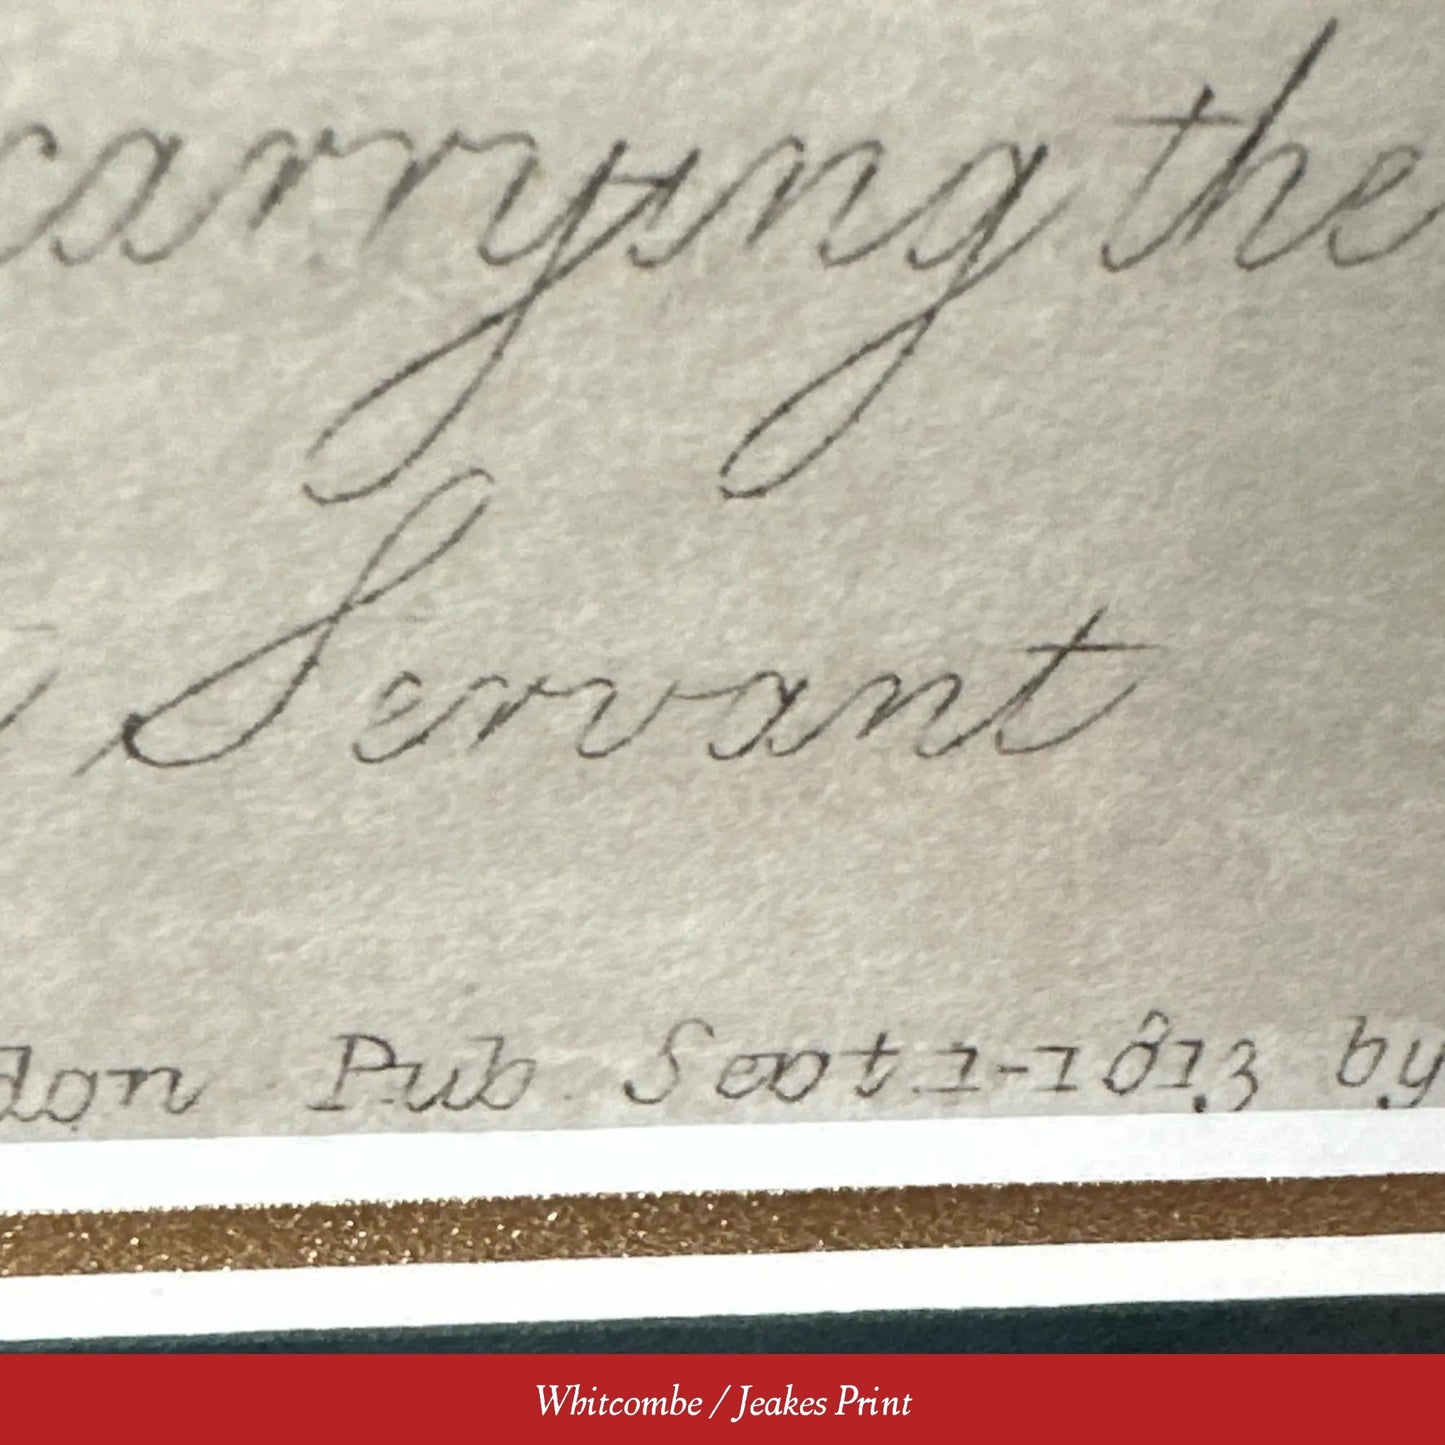 carrying the
Servant
don Pub Sept 1-1813 by
Whitcombe / Jeakes Print